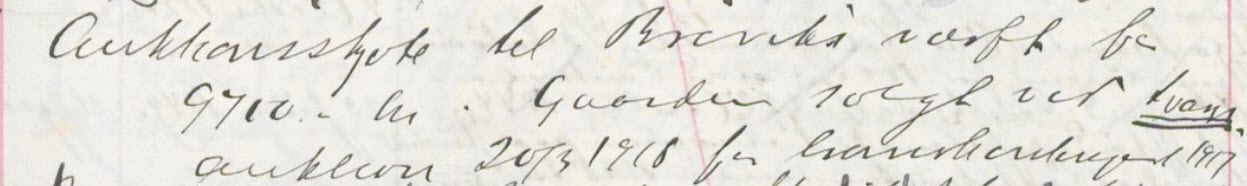 Auktionsskjøte til Breviks værft for
9710.- kr. Gaarden solgt ved tvangs
auktion 20/3 1918 for 1917